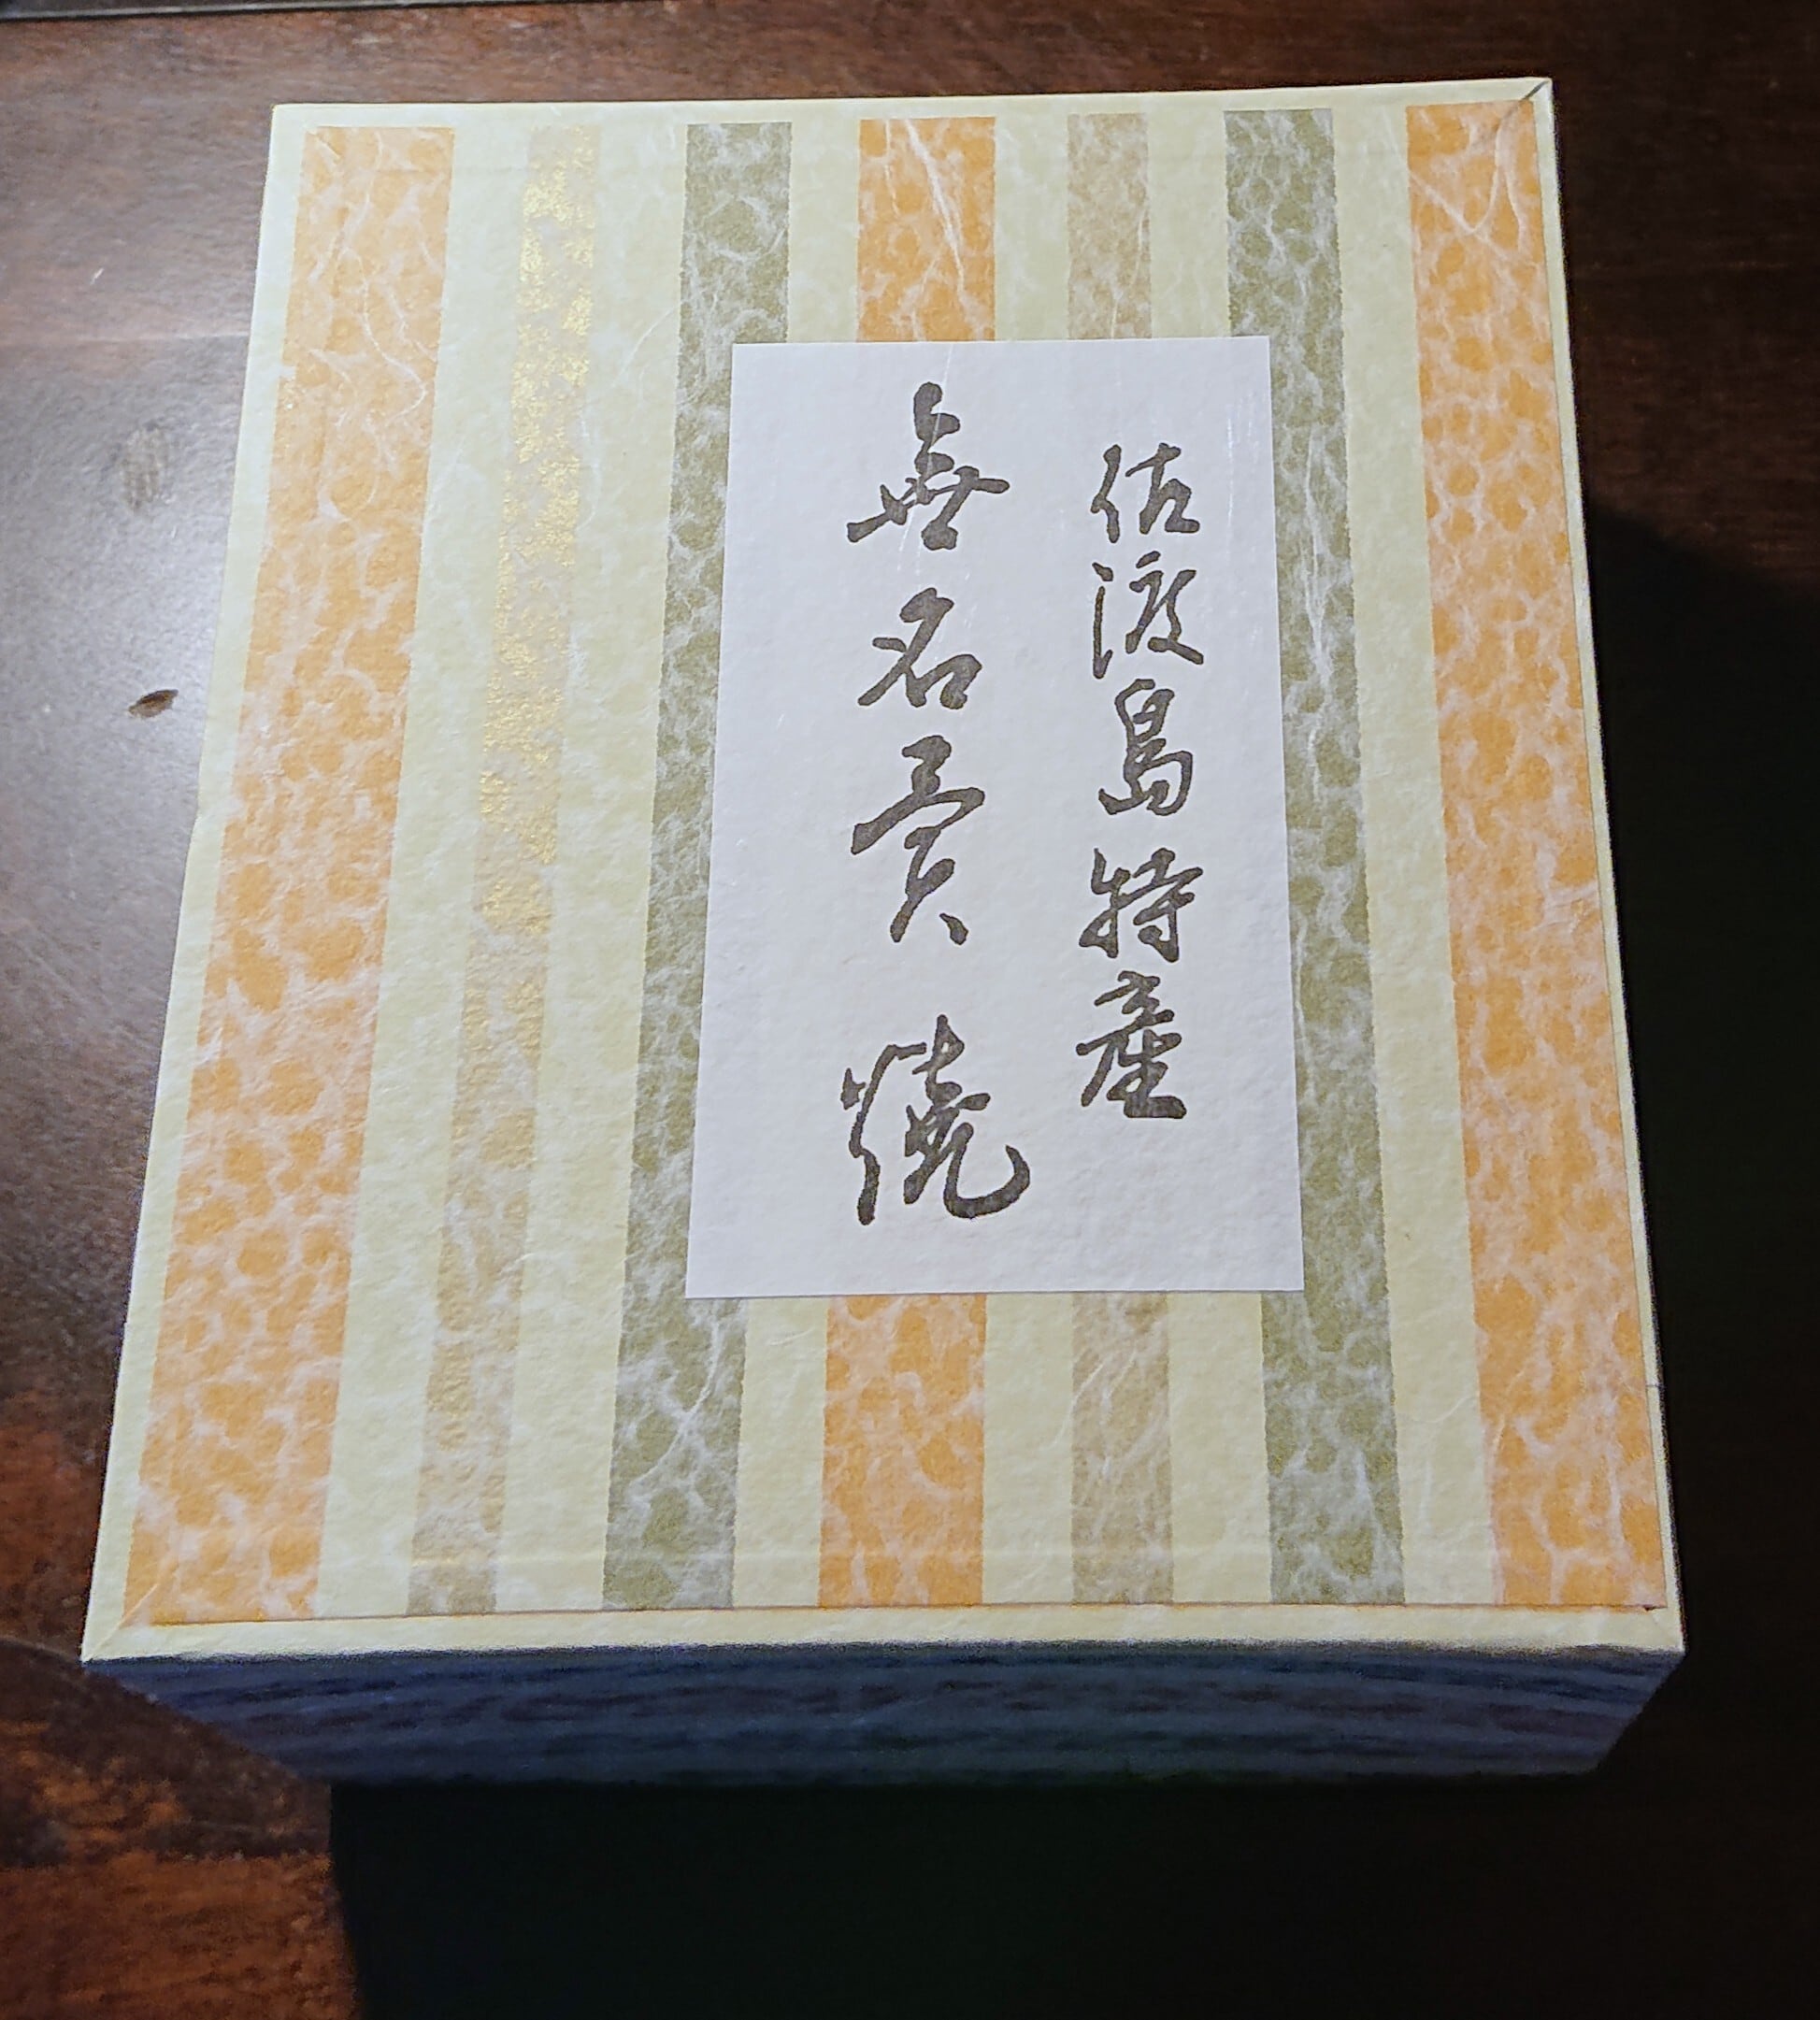 佐渡島特産
無名異焼